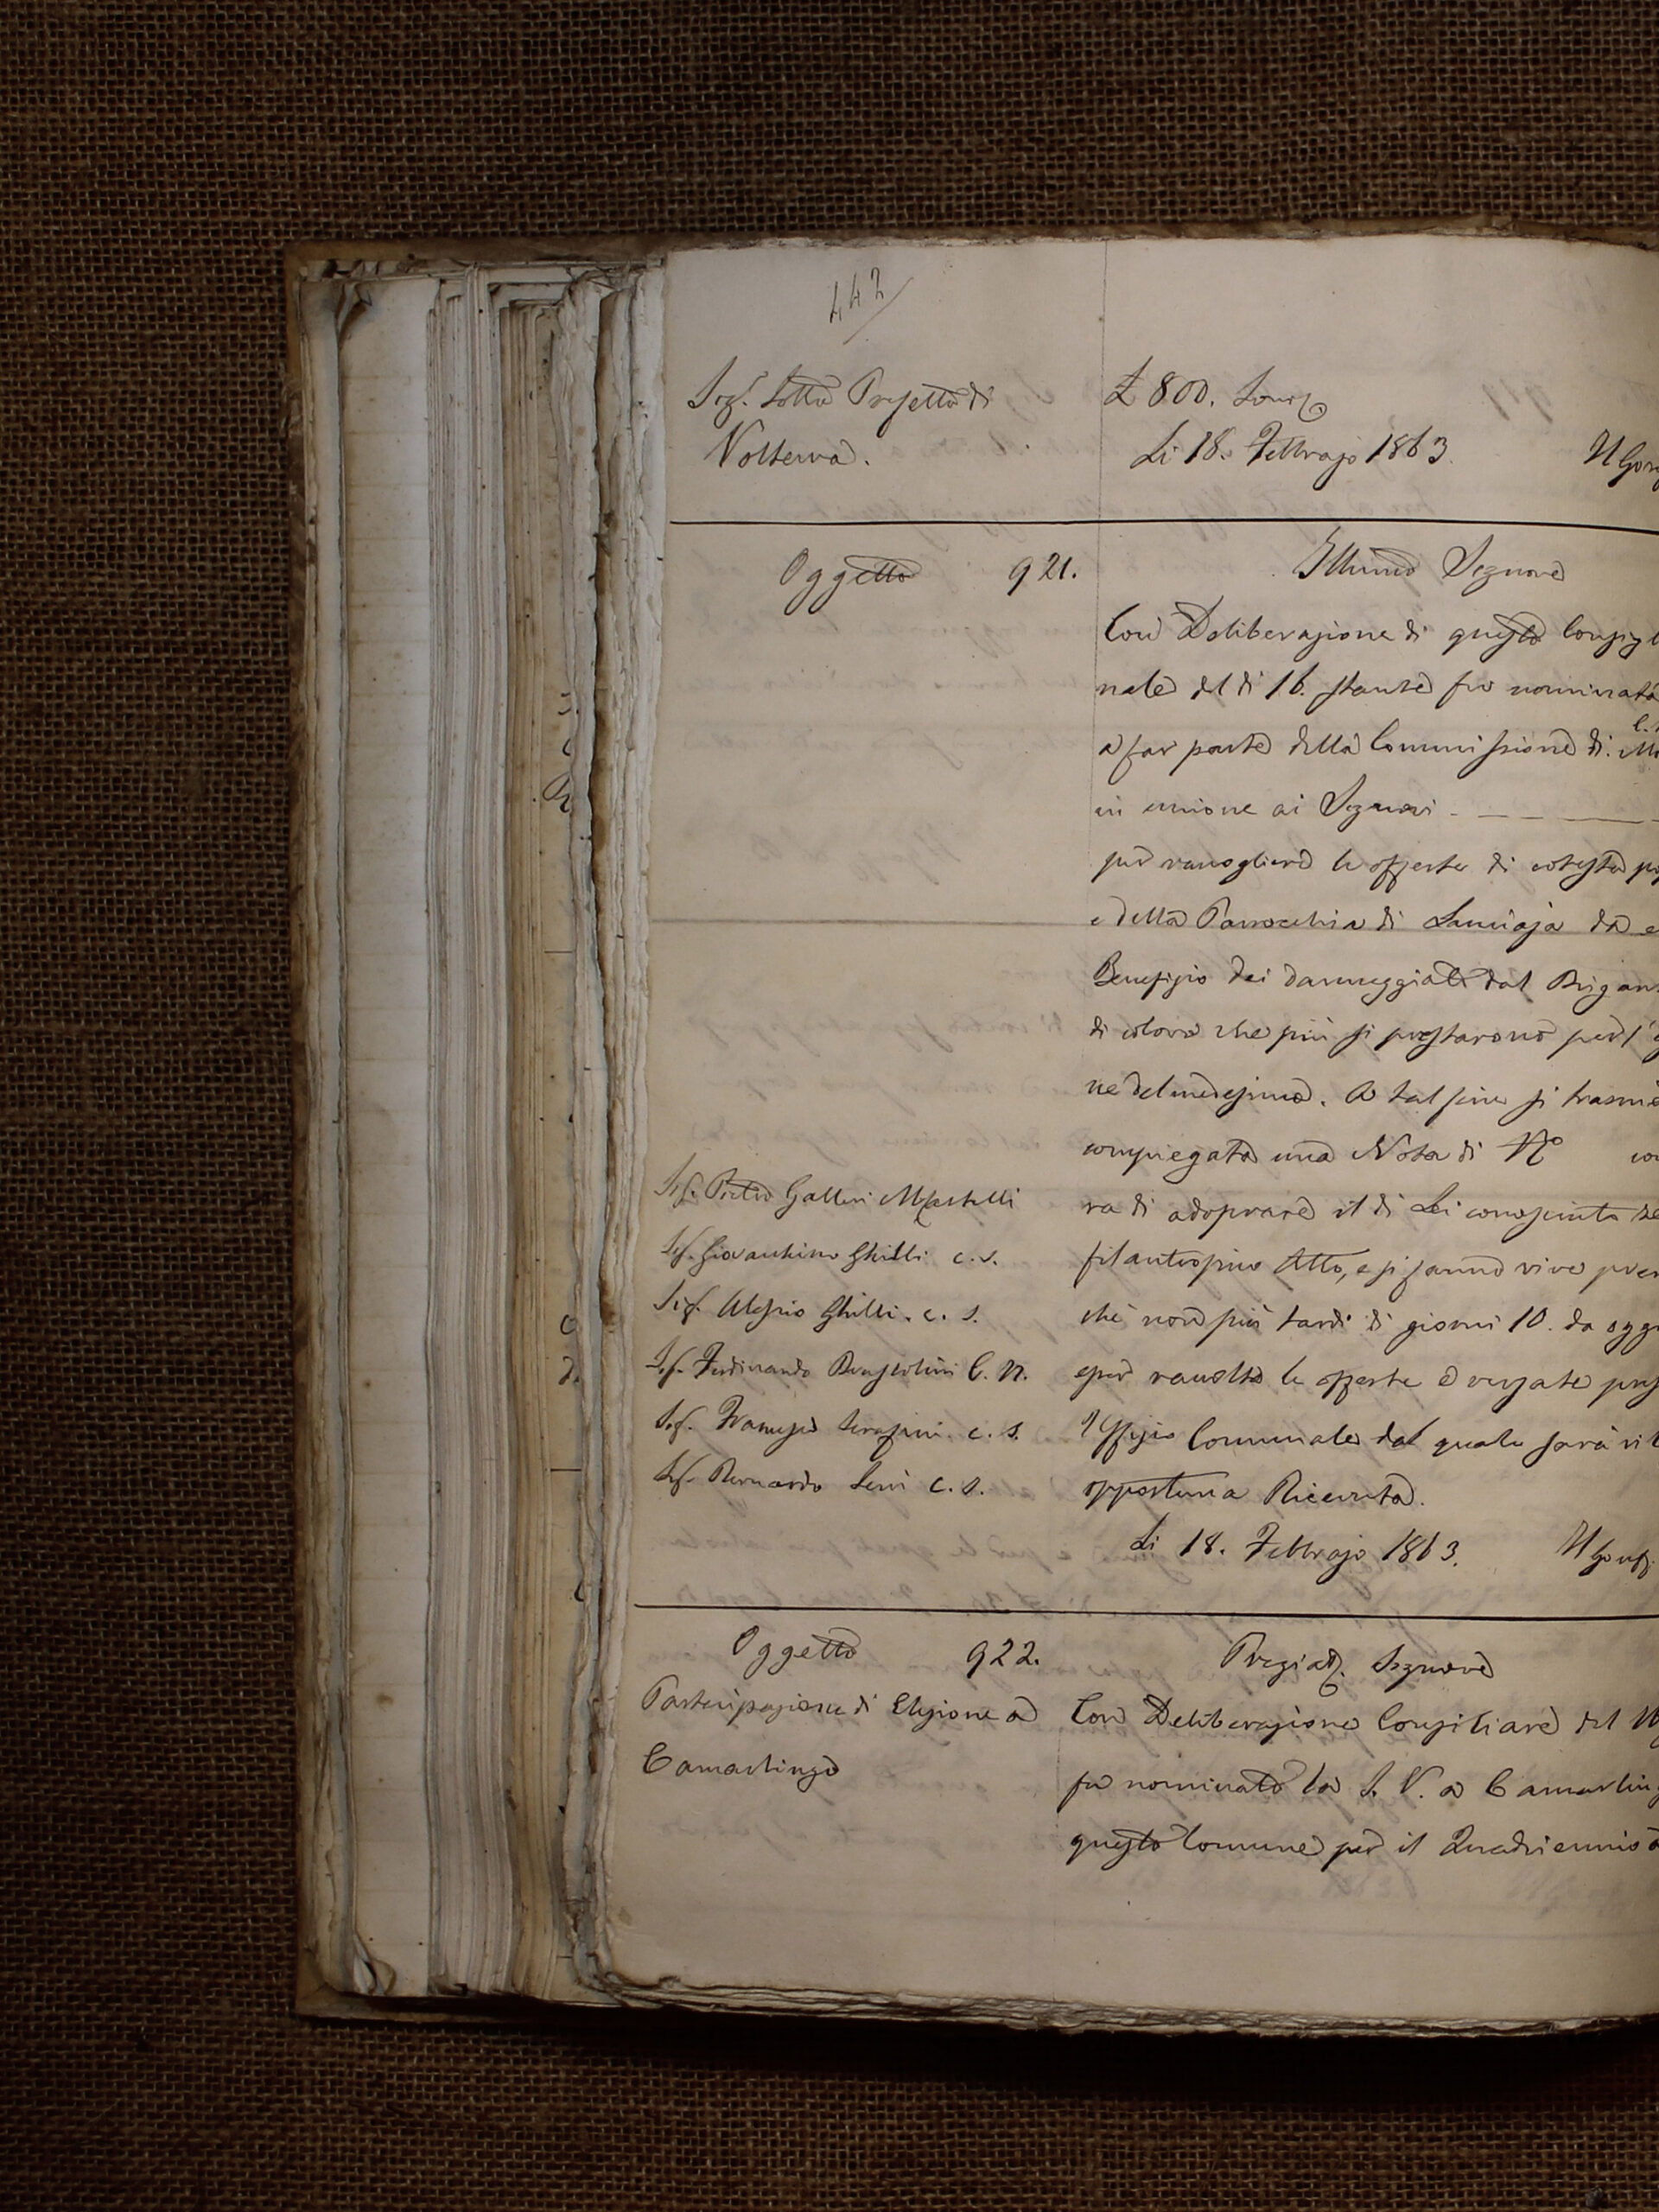 442
Sig. Sotto Prefetto di
Volterra.
£ 800.
Li 18. Febbrajo 1863. Il Gonf
Oggetto 921.
Illmo Signore
Con Deliberazione di questo Consigl
nale del dì 16. stante fu nominata
a far parte della Commissione di
in unione ai Signori
per raccogliere le offerte di cotesta po
e della Parrocchia di Lanciaja da e
Benefizio dei danneggiati dal Brigan
di coloro che più si prestarono per l'
ne del medesimo. A tal fine si trasme
compiegata una Nota di No co
ra di adoprare il di Lei conosciuto ze
filantropico Atto, e si fanno vive prem
che non più tardi di giorni 10. da oggi
raccolte le offerte e versate pres
Uffizio Comunale dal quale sarà ril
opportuna Ricevuta.
Li 18. Febbrajo 1863. Il Gonf
Sig. Pietro Galleri Martelli
Sig. Giovacchino Ghilli c. s.
Sig. Alessio Ghilli. c. s.
Sig. Ferdinando C. N.
Sig. Francesco Serafini c. s.
Sig. Bernardo Seri c. s.
Oggetto 922.
Partecipazione di Elezione a
Camarlingo
Pregiat. Signore
Con Deliberazione Consiliare del
fu nominato la S. V. a Camarling
questo Comune per il Quadriennio